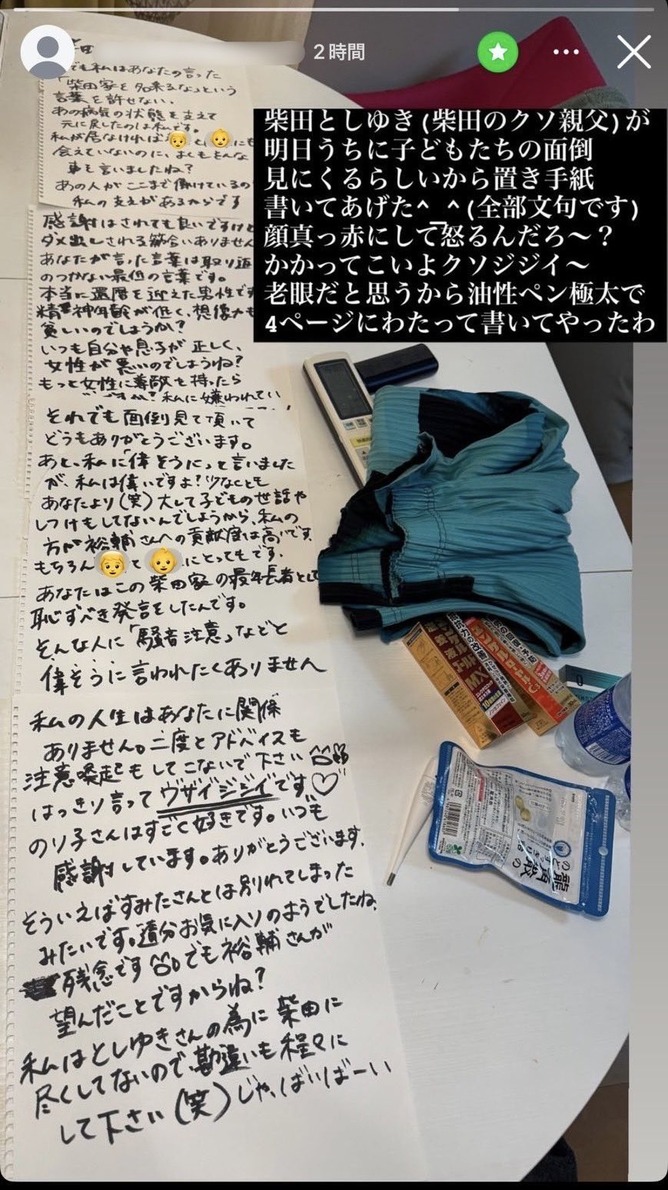 2時間
柴田としゆき(柴田のクソ親父)が
明日うちに子どもたちの面倒
見にくるらしいから置き手紙
書いてあげた^_^(全部文句です)
顔真っ赤にして怒るんだろ〜?
かかってこいよクソジジイ〜
老眼だと思うから油性ペン極太で
4ページにわたって書いてやったわ
でも私はあなたの言った
「柴田家を名乗るな」という
言葉を許せない。
あの病気の状態を支えて
元に戻したのは私です。
私が居なければ👴👶にも
会えていないのに、よくもそんな
事を言いましたね?
あの人がここまで働けているの
私の支えがあるからです
感謝はされても良いですけど
ダメ出しされる筋合いありません
あなたが言った言葉は取り返
のつかない最低の言葉です。
本当に還暦を迎えた男性です
精神年齢が低く、想像力も
貧しいのでしょうか?
いつも自分や息子が正しく、
女性が悪いのでしょうね?
もっと女性に尊敬を持ったら
ですか?私に嫌われてい
それでも面倒見て頂いて
どうもありがとうございます。
あと、私に「偉そうに」と言いました
が、私は偉いですよ!少なくとも
あなたより(笑)大して子どもの世話や
しつけもしてないんでしょうから、私の
方が裕輔さんへの貢献度は高いです
もちろん👴と👶にとってもです。
あなたはこの柴田家の最年長者として
恥ずべき発言をしたんです。
そんな人に「騒音注意」などと
偉そうに言われたくありません
私の人生はあなたに関係
ありません。二度とアドバイスも
注意喚起もしてこないで下さい
はっきり言ってウザイジジイです♡
のり子さんはすごく好きです。いつも
感謝しています。ありがとうございます。
そういえばすみたさんとは別れてしまった
みたいです。随分お気に入りのようでしたね。
残念です でも裕輔さんが
望んだことですからね?
私はとしゆきさんの為に柴田に
尽くしてないので、勘違いも程々に
して下さい(笑)じゃ、ばいばーい
龍角散の
のどすっきり